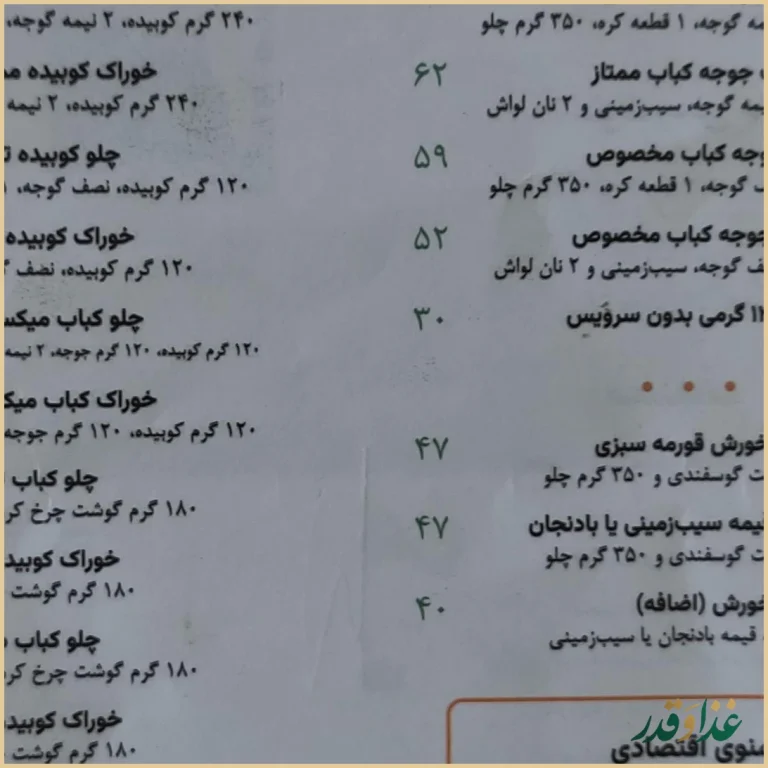 گوجه، ۱ قطعه کره، ۳۵۰ گرم چلو
جوجه کباب ممتاز ۶۲
گوجه، سیب‌زمینی و ۲ نان لواش
کباب مخصوص ۵۹
گوجه، ۱ قطعه کره، ۳۵۰ گرم چلو
کباب مخصوص ۵۲
گوجه، سیب‌زمینی و ۲ نان لواش
گرمی بدون سرویس ۳۰
خورش قورمه سبزی ۴۷
گوسفندی و ۳۵۰ گرم چلو
سیب‌زمینی یا بادنجان ۴۷
گوسفندی و ۳۵۰ گرم چلو
خورش (اضافه) ۴۰
قیمه بادنجان یا سیب‌زمینی
اقتصادی
۲۴۰ گرم کوبیده، ۲ نیمه گوجه،
خوراک کوبیده
۲۴۰ گرم کوبیده، ۲ نیمه
چلو کوبیده
۱۲۰ گرم کوبیده، نصف گوجه،
خوراک کوبیده
۱۲۰ گرم کوبیده، نصف
چلو کباب
۱۲۰ گرم کوبیده، ۱۲۰ گرم جوجه، ۲ نیمه
خوراک کباب
۱۲۰ گرم کوبیده، ۱۲۰ گرم جوجه
چلو کباب
۱۸۰ گرم گوشت چرخ
خوراک
۱۸۰ گرم گوشت
چلو کباب
۱۸۰ گرم گوشت چرخ
خوراک
۱۸۰ گرم گوشت
غذا و قدر